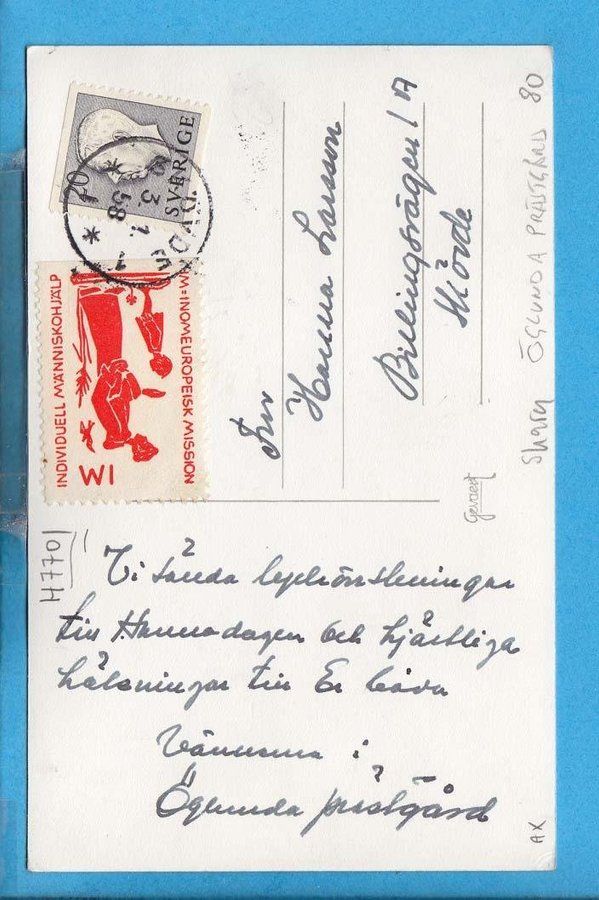 20
SVERIGE
3
1.
58
INDIVIDUELL MÄNNISKOHJÄLP
IM
IM=INOMEUROPEISK MISSION
Fru
Hanna Larsson
Billingsvägen 1 A
Skövde
Gevaert
Skara ÖGLUNDA PRÄSTGÅRD 80
H7701
Vi sända lyckönskningar
till Hannadagen och hjärtliga
hälsningar till Er båda
Vännerna i
Öglunda prästgård
AX